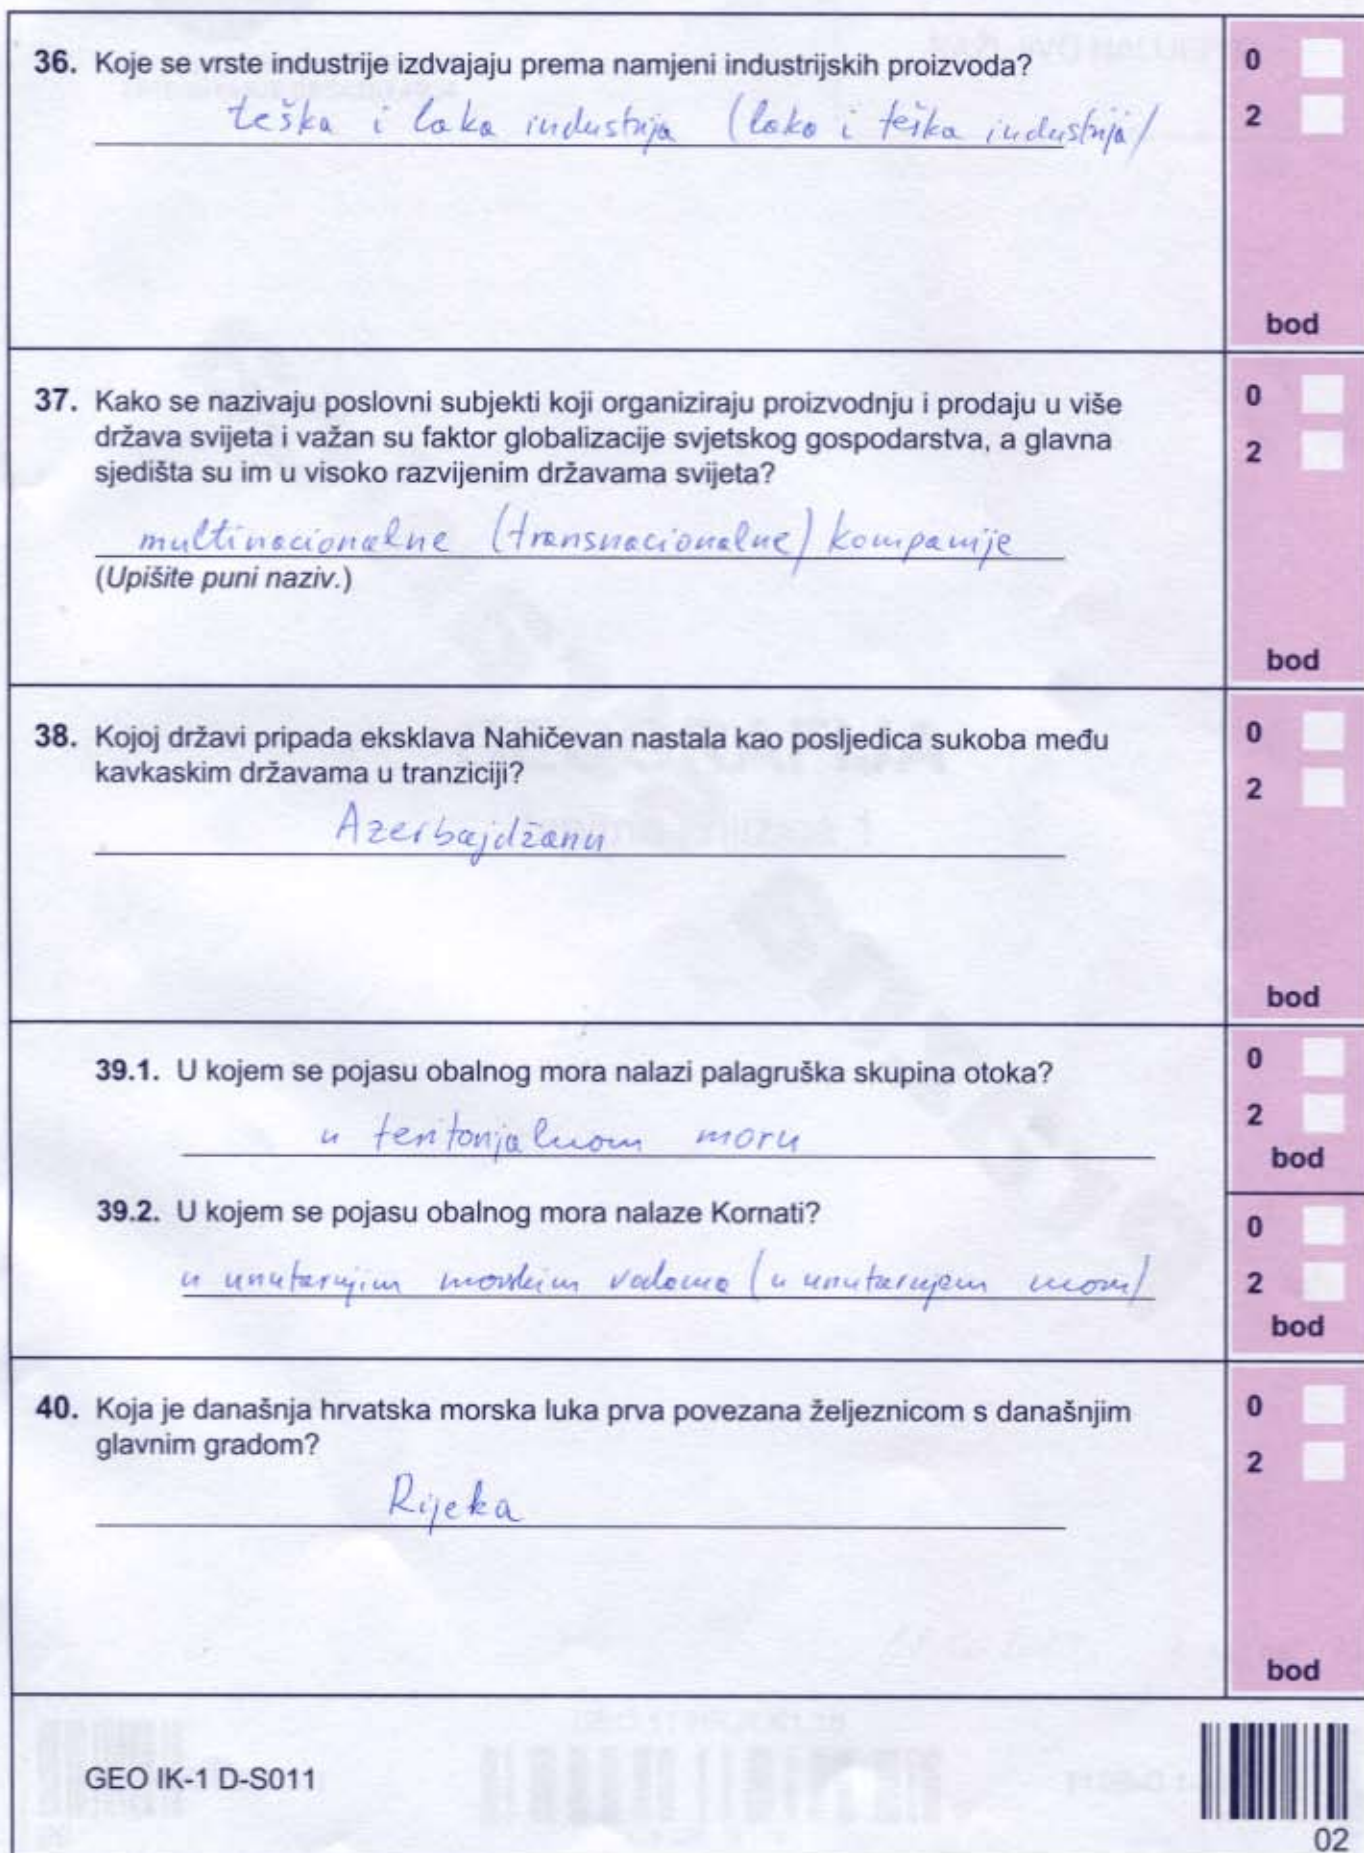 36. Koje se vrste industrije izdvajaju prema namjeni industrijskih proizvoda?
teška i laka industrija (laka i teška industrija)
0
2
bod
37. Kako se nazivaju poslovni subjekti koji organiziraju proizvodnju i prodaju u više
država svijeta i važan su faktor globalizacije svjetskog gospodarstva, a glavna
sjedišta su im u visoko razvijenim državama svijeta?
multinacionalne (transnacionalne) kompanije
(Upišite puni naziv.)
0
2
bod
38. Kojoj državi pripada eksklava Nahičevan nastala kao posljedica sukoba među
kavkaskim državama u tranziciji?
Azerbajdžanu
0
2
bod
39.1. U kojem se pojasu obalnog mora nalazi palagruška skupina otoka?
u teritorijalnom moru
0
2
bod
39.2. U kojem se pojasu obalnog mora nalaze Kornati?
u unutarnjim morskim vodama (u unutarnjem moru)
0
2
bod
40. Koja je današnja hrvatska morska luka prva povezana željeznicom s današnjim
glavnim gradom?
Rijeka
0
2
bod
GEO IK-1 D-S011
02